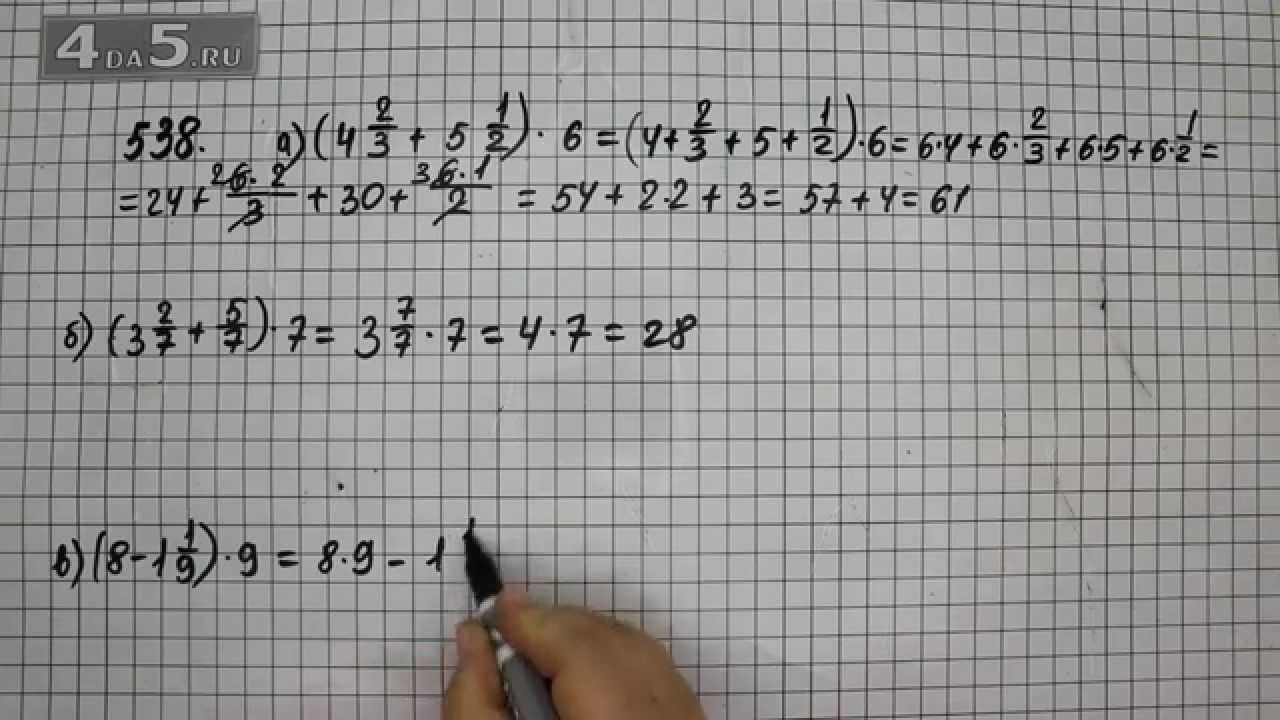 4DA5.RU
538. а) (4 2/3 + 5 1/2) · 6 = (4 + 2/3 + 5 + 1/2) · 6 = 6·4 + 6 · 2/3 + 6·5 + 6 · 1/2 =
= 24 + 2 6 · 2/3 + 30 + 3 6 · 1/2 = 54 + 2·2 + 3 = 57 + 4 = 61
б) (3 2/7 + 5/7) · 7 = 3 7/7 · 7 = 4 · 7 = 28
в) (8 - 1 1/9) · 9 = 8·9 - 1 1